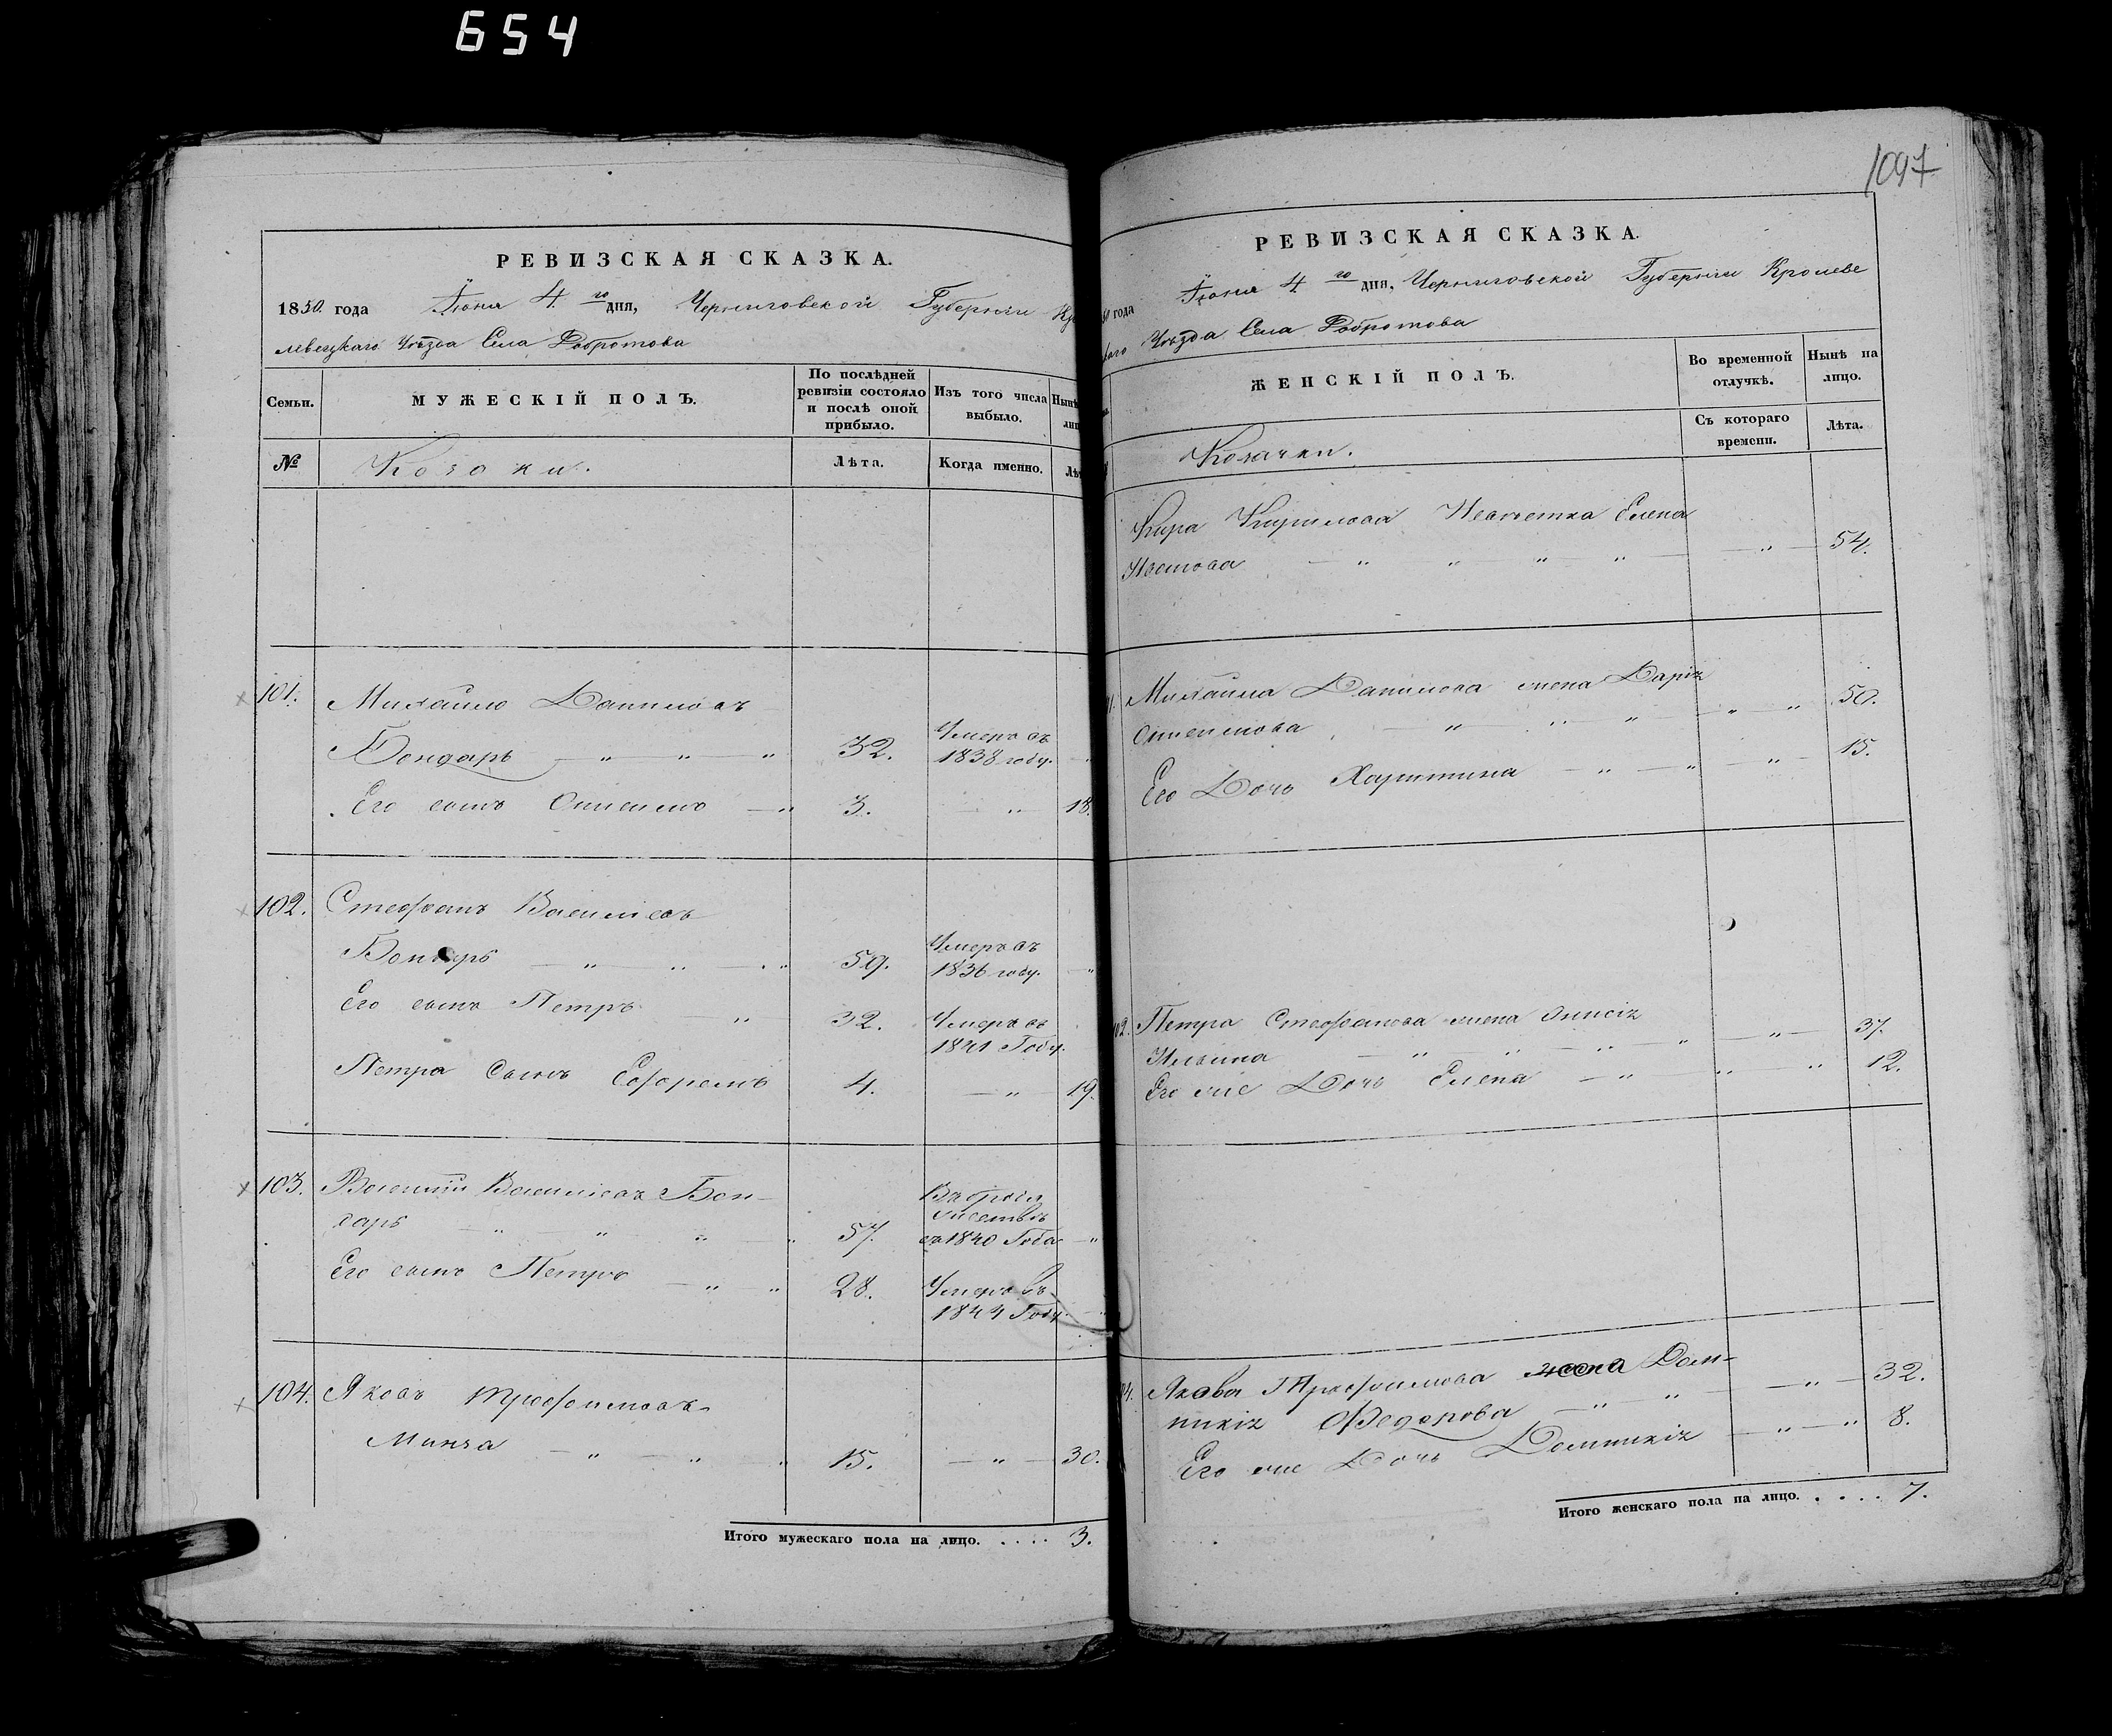 654
РЕВИЗСКАЯ СКАЗКА.
1850. года Іюня 4 го дня, Черниговской Губерніи Кро
левецкаго Уѣзда Села Добротова
Семьи.
МУЖЕСКІЙ ПОЛЪ.
По послѣдней ревизіи состояло и послѣ оной прибыло.
Изъ того числа выбыло.
Нынѣ
лиц
№
Козаки.
Лѣта.
Когда именно.
Лѣт
101. Михайло Даниловъ
Бондарь 32. Умеръ въ 1838 году.
Его сынъ 3. 18.
102. Стефанъ Васильевъ
Бондарь 59. Умеръ въ 1836 году.
Его сынъ Петръ 32. Умеръ въ 1841 Году.
Петра Сынъ Ефремъ 4. 19.
103. Василій Васильевъ Бон-
дарь 57. въ 1840 Года
Его сынъ Петръ 28. Умеръ въ 1844 Году.
104. Яковъ Трофимовъ
Минча 15. 30.
Итого мужескаго пола на лицо. . . . . 3.
1097
РЕВИЗСКАЯ СКАЗКА.
50 года Іюня 4 го дня, Черниговской Губерніи Кролеве
каго Уѣзда Села Добротова
ЖЕНСКІЙ ПОЛЪ.
Во временной отлучкѣ.
Нынѣ на лицо.
Козачки.
Съ котораго времени.
Лѣта.
Кира Кирилова Невѣстка Елена
Иванова 54.
Михайла Данилова жена Дарія
50.
Его Дочь Харитина 15.
102. Петра Стефанова жена Анисія
Ильина 37.
Его же Дочь Елена 12.
104. Якова Трофимова жена Дом-
никія Федорова 32.
Его же Дочь Домникія 8.
Итого женскаго пола на лицо. . . . . 7.